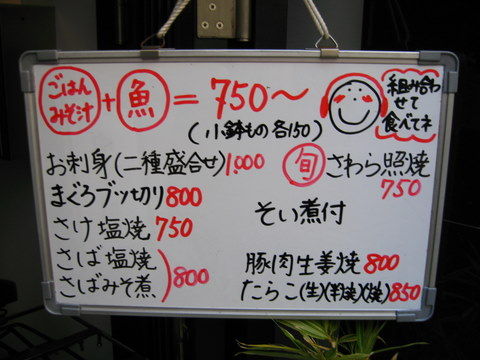 ごはん
みそ汁
+
魚
= 750〜
(小鉢もの 各150)
組み合わ
せて
食べてネ
お刺身(二種盛合せ)1.000
まぐろブツ切り800
さけ塩焼 750
さば塩焼
さばみそ煮
800
旬 さわら照焼
750
そい煮付
豚肉生姜焼 800
たらこ(生)(半焼)(焼)850